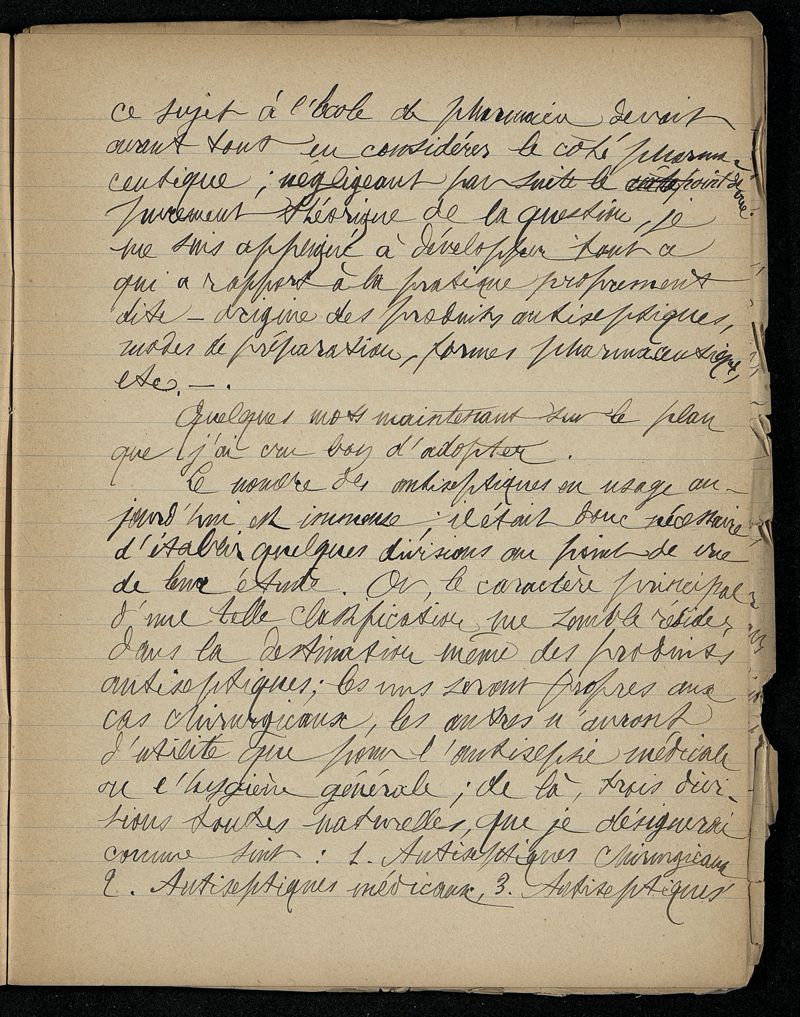 ce sujet à l'École de pharmacie devait
avant tout en considérer le côté pharma-
ceutique ; négligeant par suite le point de vue
purement théorique de la question, je
me suis appliqué à développer tout ce
qui a rapport à la pratique proprement
dite – origine des produits antiseptiques,
modes de préparation, formes pharmaceutiques,
etc. – .
Quelques mots maintenant sur le plan
que j'ai cru bon d'adopter.
Le nombre des antiseptiques en usage au-
jourd'hui est immense ; il était donc nécessaire
d'établir quelques divisions au point de vue
de leur étude. Or, le caractère principal
d'une telle classification me semble résider
dans la destination même des produits
antiseptiques ; les uns seront propres aux
cas chirurgicaux, les autres n'auront
d'utilité que pour l'antisepsie médicale
ou l'hygiène générale ; de là, trois divi-
sions toutes naturelles, que je désignerai
comme suit : 1. Antiseptiques chirurgicaux
2. Antiseptiques médicaux, 3. Antiseptiques